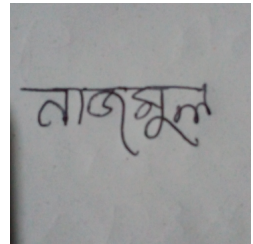 নাজমুল